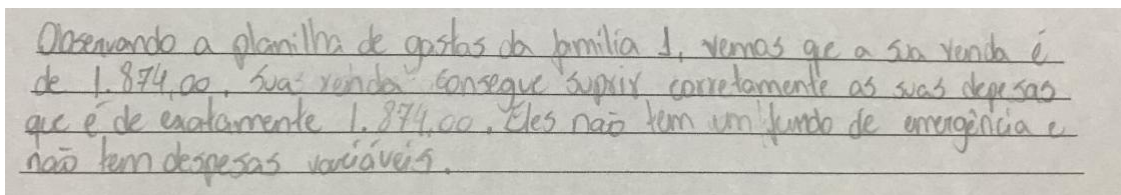 Observando a planilha de gastos da família 1, vemos qe a sua renda é
de 1.874,00. Sua renda consegue suprir corretamente as suas depesas
que é de exatamente 1.874,00. Eles não tem um fundo de emergência e
não tem despesas variáveis.